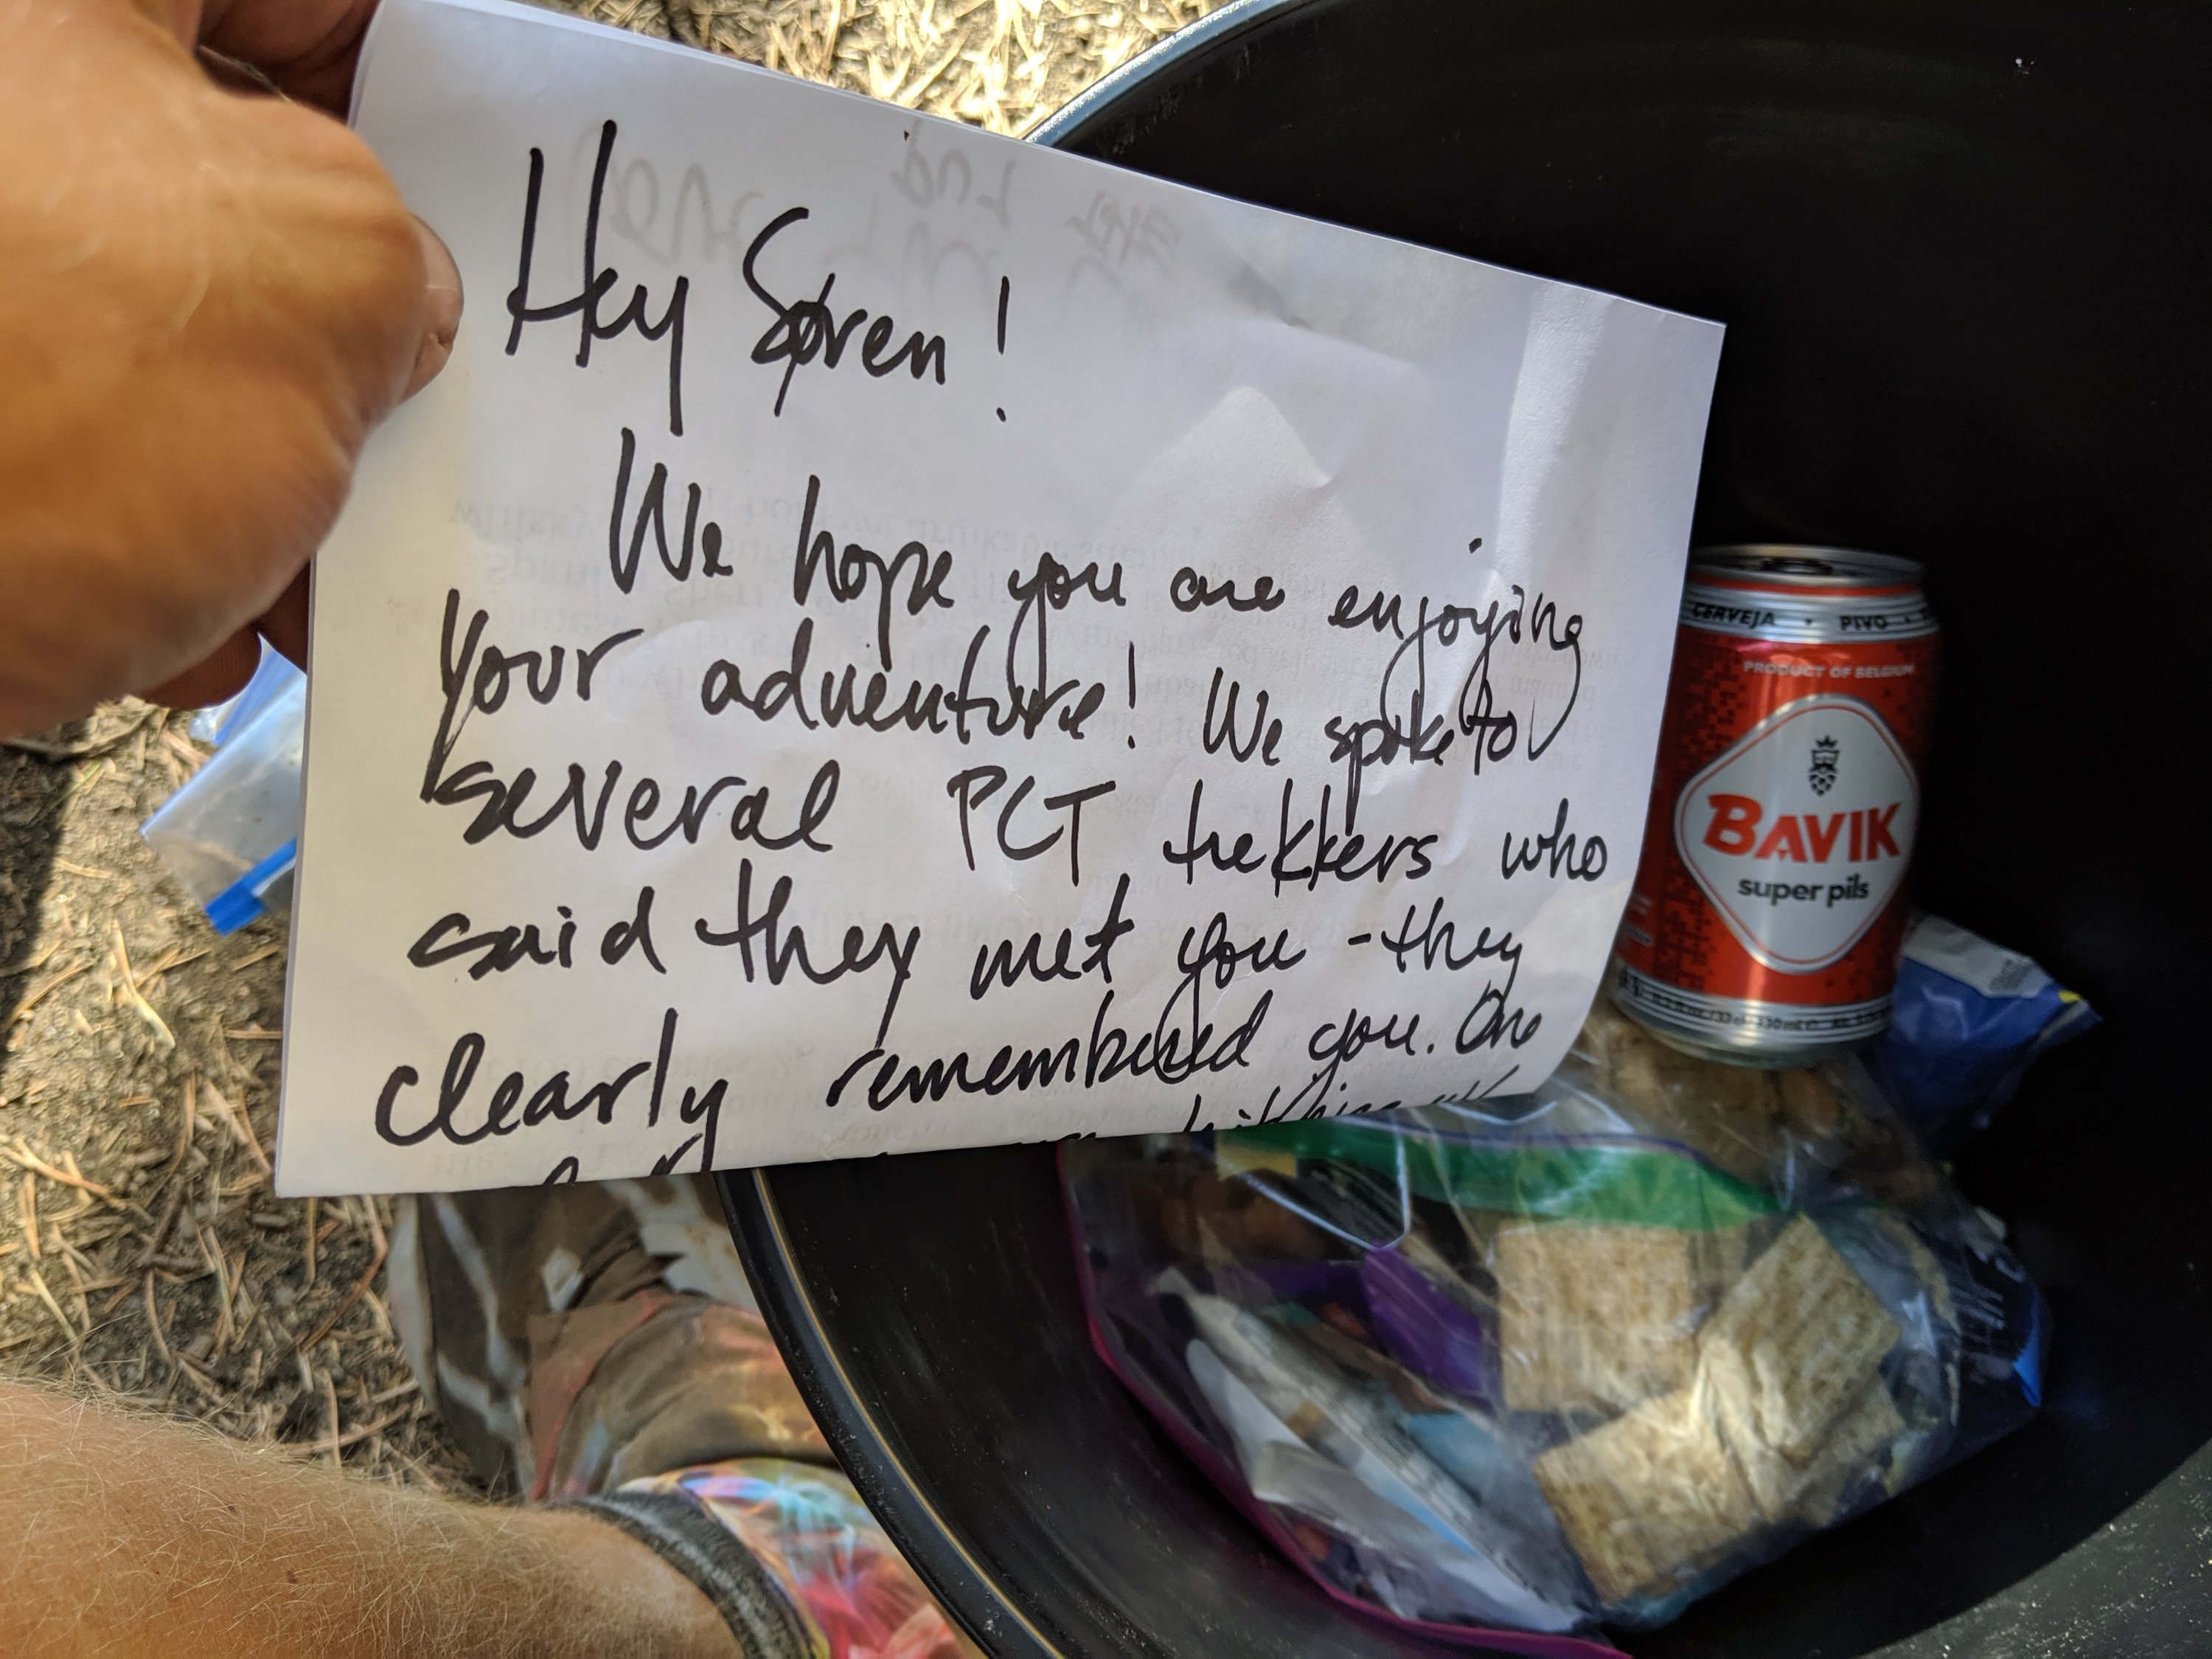 Hey Søren!
We hope you are enjoying
your adventure! We spoke to
several PCT trekkers who
said they met you - they
clearly remembered you. One
CERVEJA • PIVO •
PRODUCT OF BELGIUM
BAVIK
super pils